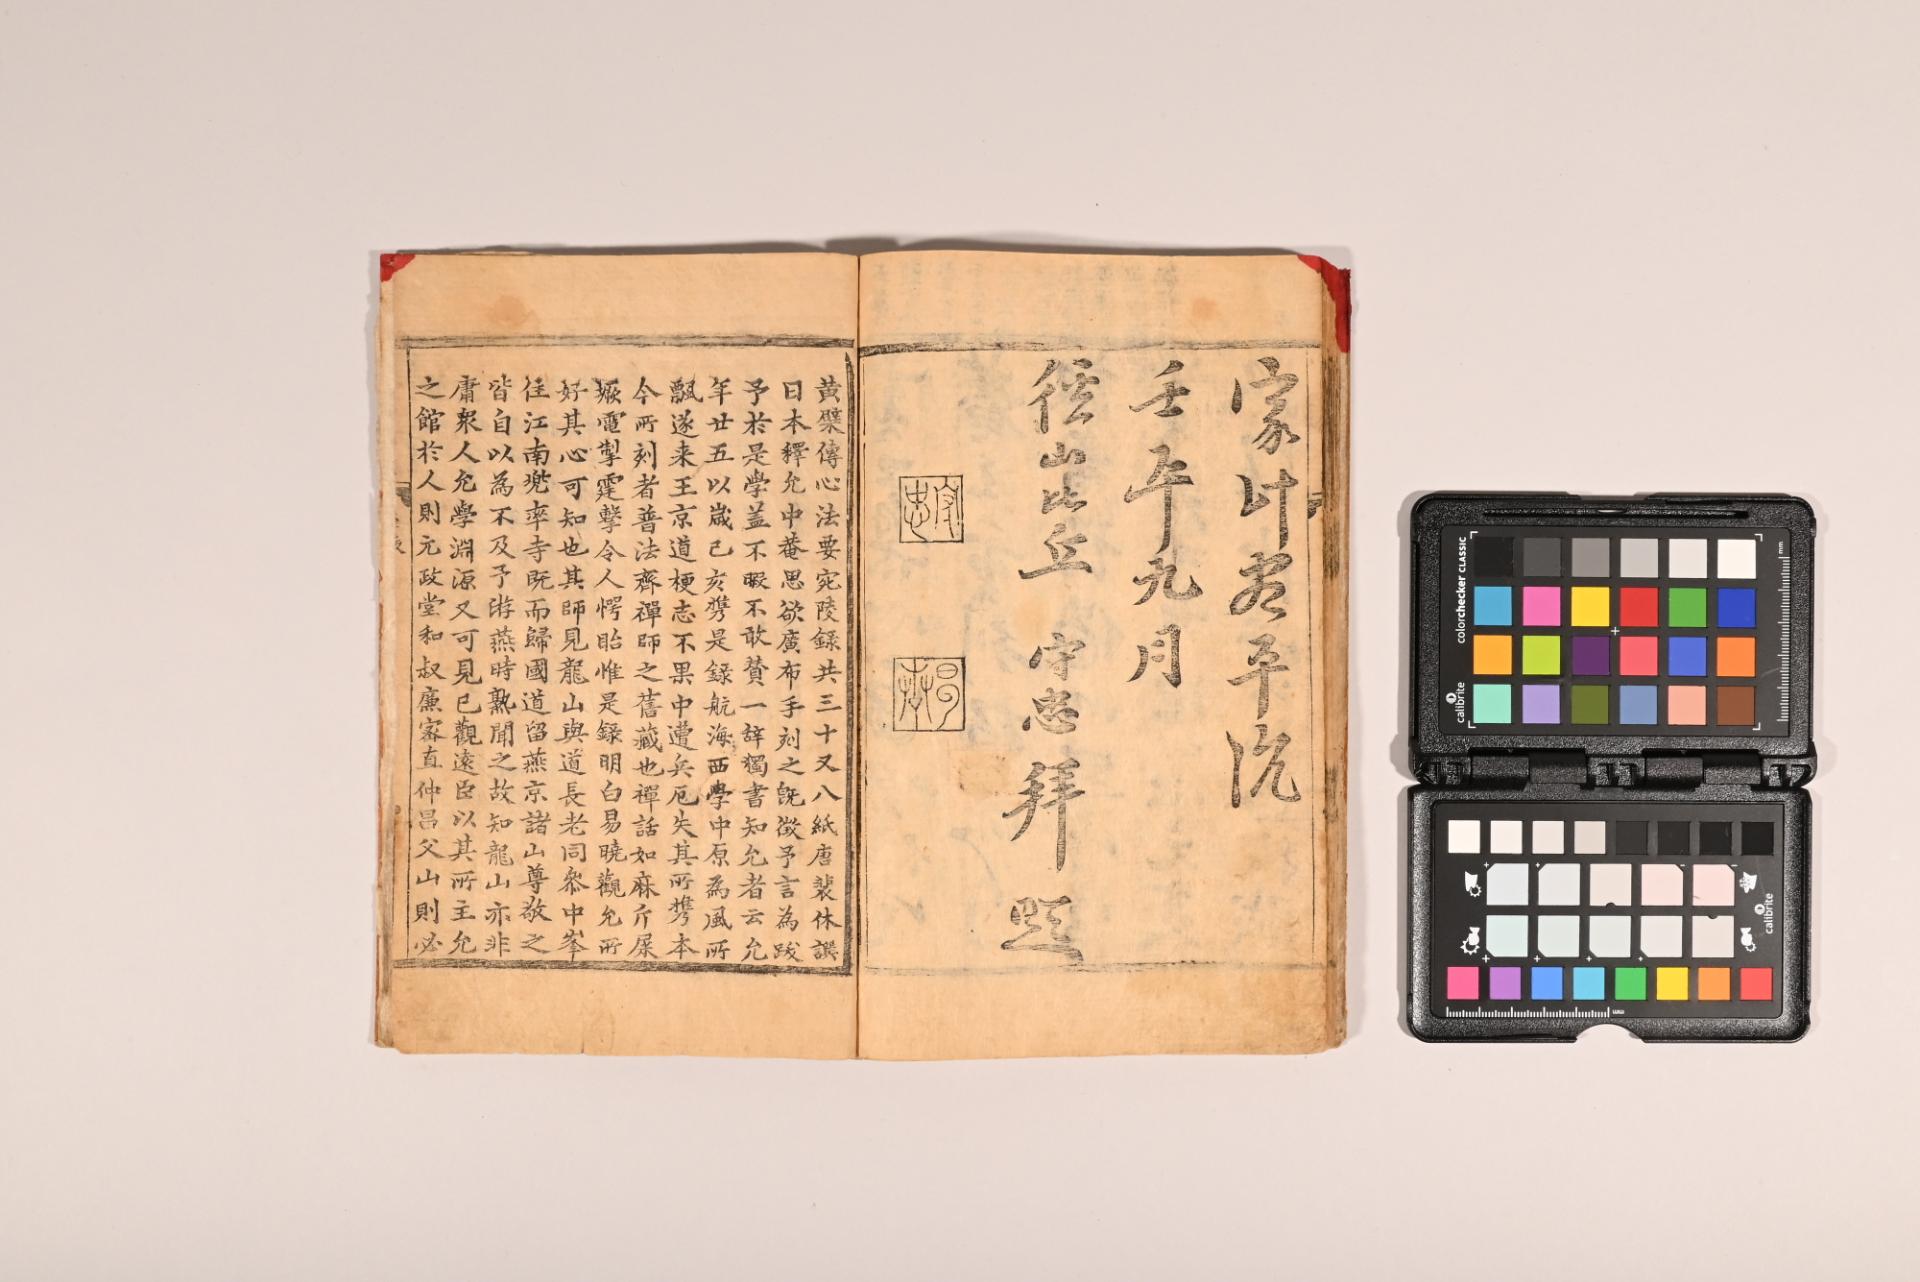 家計若平沉
壬午九月
徑山比丘 守忠 拜 題
守忠
黃檗傳心法要宛陵錄共三十又八紙唐裴休譔
日本釋允中菴思欲廣布手刻之旣徵予言為跋
予於是學蓋不暇不敢贊一辞獨書知允者云允
年廿五以歲己亥携是録航海西學中原為風所
飄遂来王京道梗志不果中遭兵厄失其所携本
今所刻者普法齊禪師之舊藏也禪話如麻斤屎
橛電掣霆擊令人愕眙惟是録明白易曉觀允所
好其心可知也其師見龍山與道長老同叅中峯
徃江南兠率寺旣而歸國道留燕京諸山尊敬之
皆自以為不及予游燕時熟聞之故知龍山亦非
庸衆人允學淵源又可見已觀遠臣以其所主允
之館於人則元政堂和叔廉宻直仲昌父山則必
colorchecker CLASSIC
calibrite
mm
calibrite